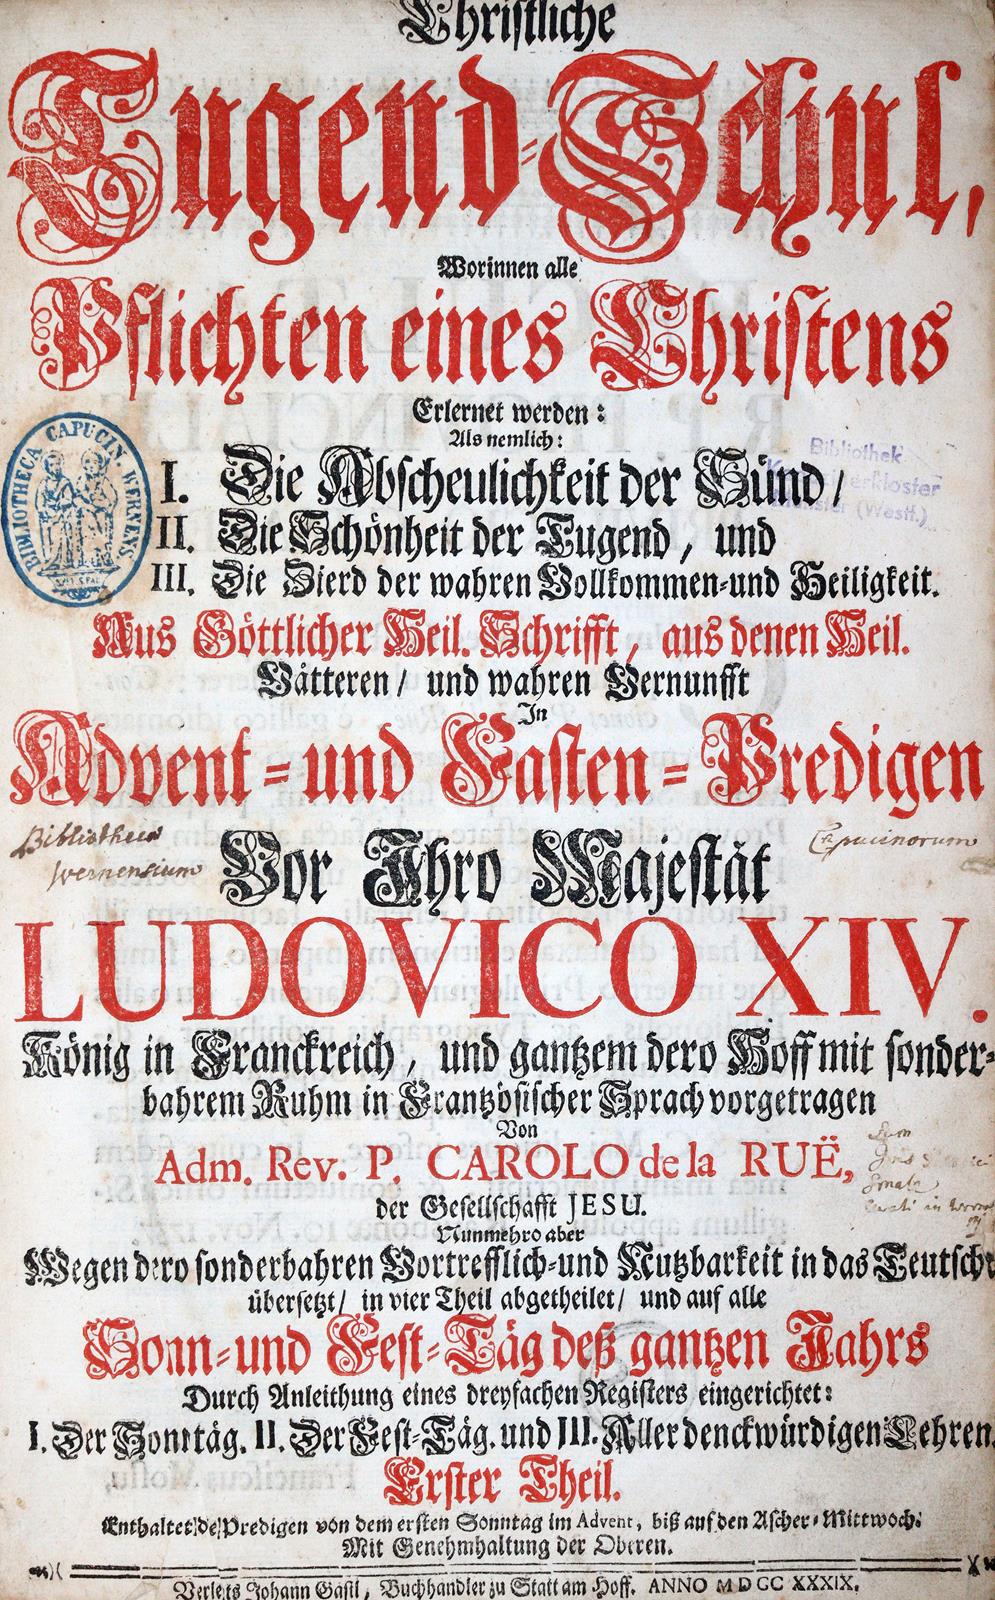 Christliche
Tugend-Schul,
Worinnen alle
Pflichten eines Christens
Erlernet werden:
Als nemlich:
I. Die Abscheulichkeit der Sünd/
II. Die Schönheit der Tugend, und
III. Die Zierd der wahren Vollkommen-und Heiligkeit.
Aus Göttlicher Heil. Schrifft, aus denen Heil.
Vätteren/ und wahren Vernunfft
In
Advent-und Fasten-Predigen
Vor Ihro Majestät
LUDOVICO XIV.
König in Franckreich, und gantzem dero Hoff mit sonder-
bahrem Ruhm in Frantzösischer Sprach vorgetragen
Von
Adm. Rev. P. CAROLO de la RUË,
der Gesellschafft JESU.
Nunmehro aber
Wegen dero sonderbahren Vortrefflich-und Nutzbarkeit in das Teutsche
übersetzt/ in vier Theil abgetheilet/ und auf alle
Sonn-und Fest-Täg deß gantzen Jahrs
Durch Anleithung eines dreyfachen Registers eingerichtet:
I. Der Sonntäg. II. Der Fest-Täg. und III. Aller denckwürdigen Lehren.
Erster Theil.
Enthaltet de Predigen von dem ersten Sonntag im Advent, biß auf den Ascher-Mittwoch.
Mit Genehmhaltung der Oberen.
Verlegts Johann Gastl, Buchhandler zu Statt am Hoff. ANNO MDCC XXXIX.
BIBLIOTHECA CAPUCIN. WERNENS.
Bibliothek
Kapuzinerkloster
Münster (Westf.)
Bibliotheca
Wernensium
Capucinorum